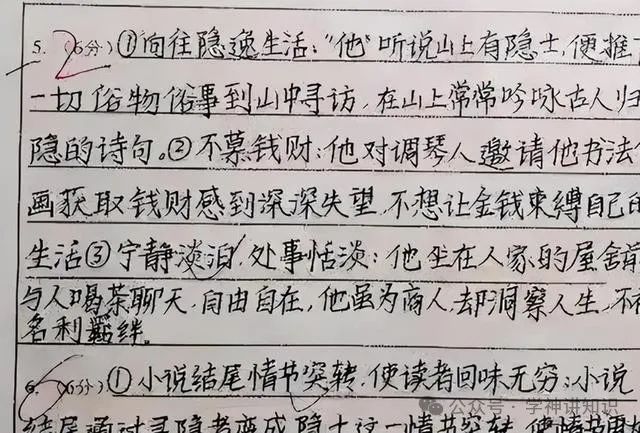 5. (6分)①向往隐逸生活:"他"听说山上有隐士,便推
一切俗物俗事到山中寻访,在山上常常吟咏古人归
隐的诗句。②不慕钱财:他对调琴人邀请他书法
画获取钱财感到深深失望,不想让金钱束缚自己
生活③宁静淡泊,处事恬淡:他坐在人家的屋舍前
与人喝茶聊天,自由自在,他虽为商人,却洞察人生,不
名利羁绊。
6. (6分)①小说结尾情节突转,使读者回味无穷;小说
结尾通过寻隐者变成隐士这一情节突转,使情节更
公众号·学神讲知识